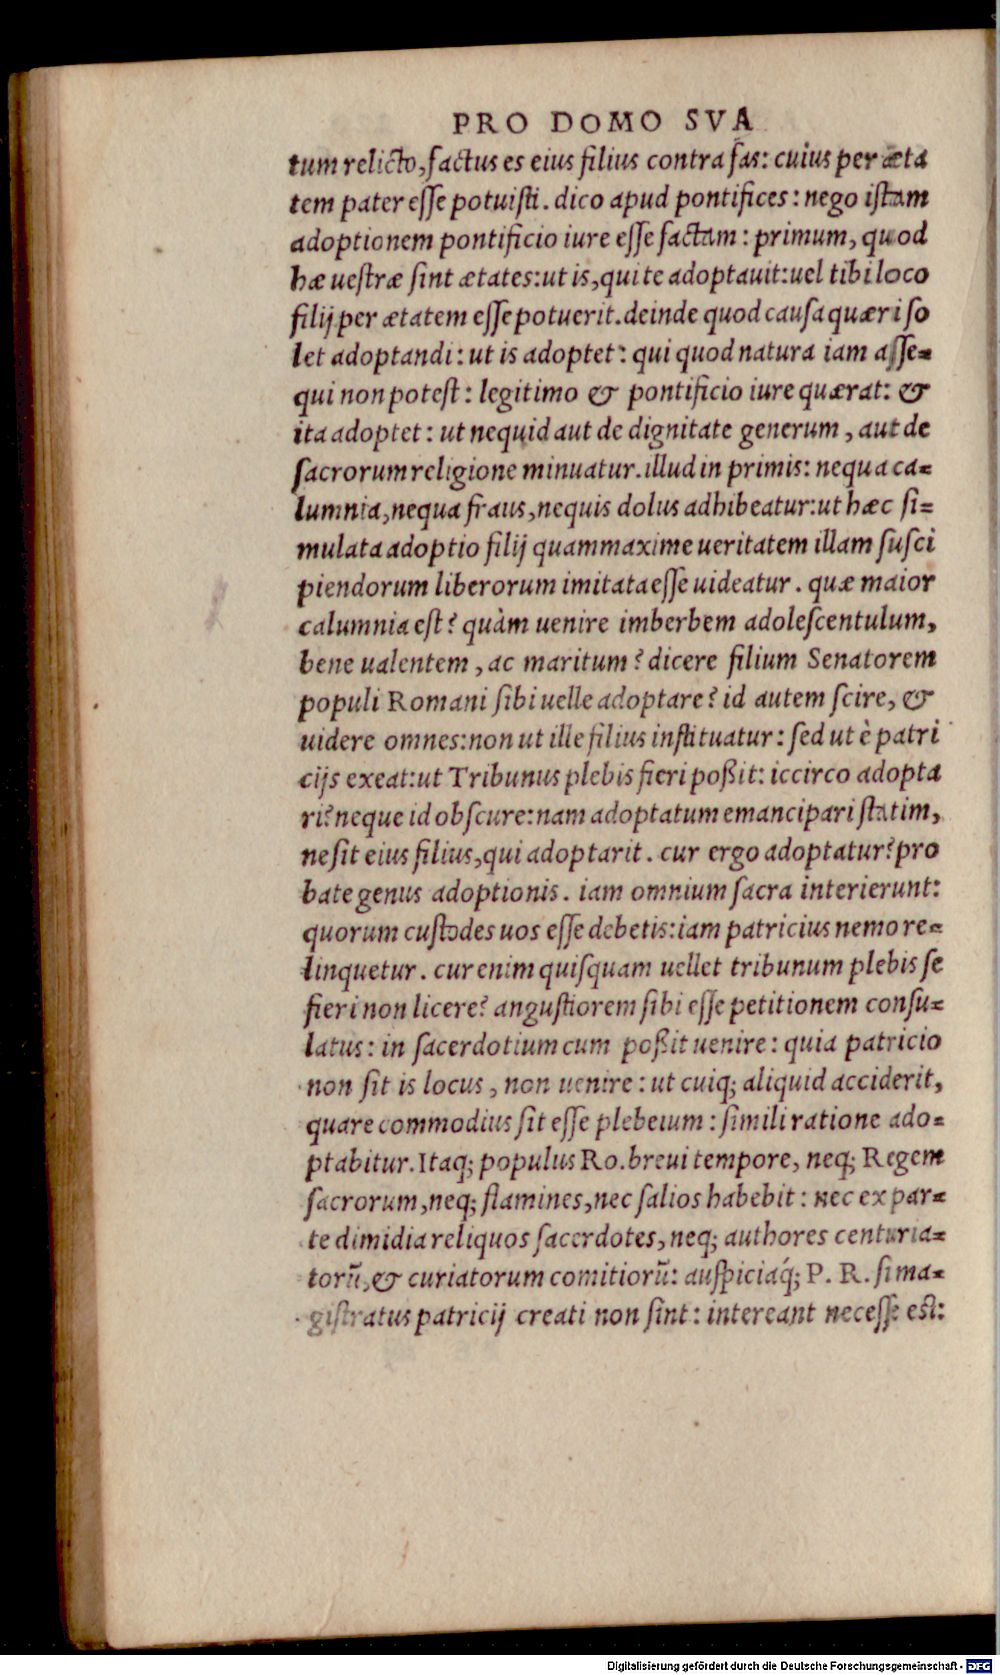 PRO DOMO SVA
tum relicto, factus es eius filius contra fas: cuius per æta
tem pater esse potuisti. dico apud pontifices: nego istam
adoptionem pontificio iure esse factam: primum, quod
hæ uestræ sint ætates: ut is, qui te adoptauit: uel tibi loco
filij per ætatem esse potuerit. deinde quod causa quæri so
let adoptandi: ut is adoptet: qui quod natura iam asse=
qui non potest: legitimo & pontificio iure quærat: &
ita adoptet: ut nequid aut de dignitate generum, aut de
sacrorum religione minuatur. illud in primis: nequa ca=
lumnia, nequa fraus, nequis dolus adhibeatur: ut hæc si=
mulata adoptio filij quammaxime ueritatem illam susci
piendorum liberorum imitata esse uideatur. quæ maior
calumnia est? quàm uenire imberbem adolescentulum,
bene ualentem, ac maritum? dicere filium Senatorem
populi Romani sibi uelle adoptare? id autem scire, &
uidere omnes: non ut ille filius instituatur: sed ut è patri
cijs exeat: ut Tribunus plebis fieri poßit: iccirco adopta
ri? neque id obscure: nam adoptatum emancipari statim,
ne sit eius filius, qui adoptarit. cur ergo adoptatur? pro
bate genus adoptionis. iam omnium sacra interierunt:
quorum custodes uos esse debetis: iam patricius nemo re=
linquetur. cur enim quisquam uellet tribunum plebis se
fieri non licere? angustiorem sibi esse petitionem consu=
latus: in sacerdotium cum poßit uenire: quia patricio
non sit is locus, non uenire: ut cuiq; aliquid acciderit,
quare commodius sit esse plebeium: simili ratione ado=
ptabitur. Itaq; populus Ro. breui tempore, neq; Regem
sacrorum, neq; flamines, nec salios habebit: nec ex par=
te dimidia reliquos sacerdotes, neq; authores centuria=
torũ, & curiatorum comitiorũ: auspiciaq́; P. R. si ma=
gistratus patricij creati non sint: intereant necesse est:
Digitalisierung gefördert durch die Deutsche Forschungsgemeinschaft - DFG